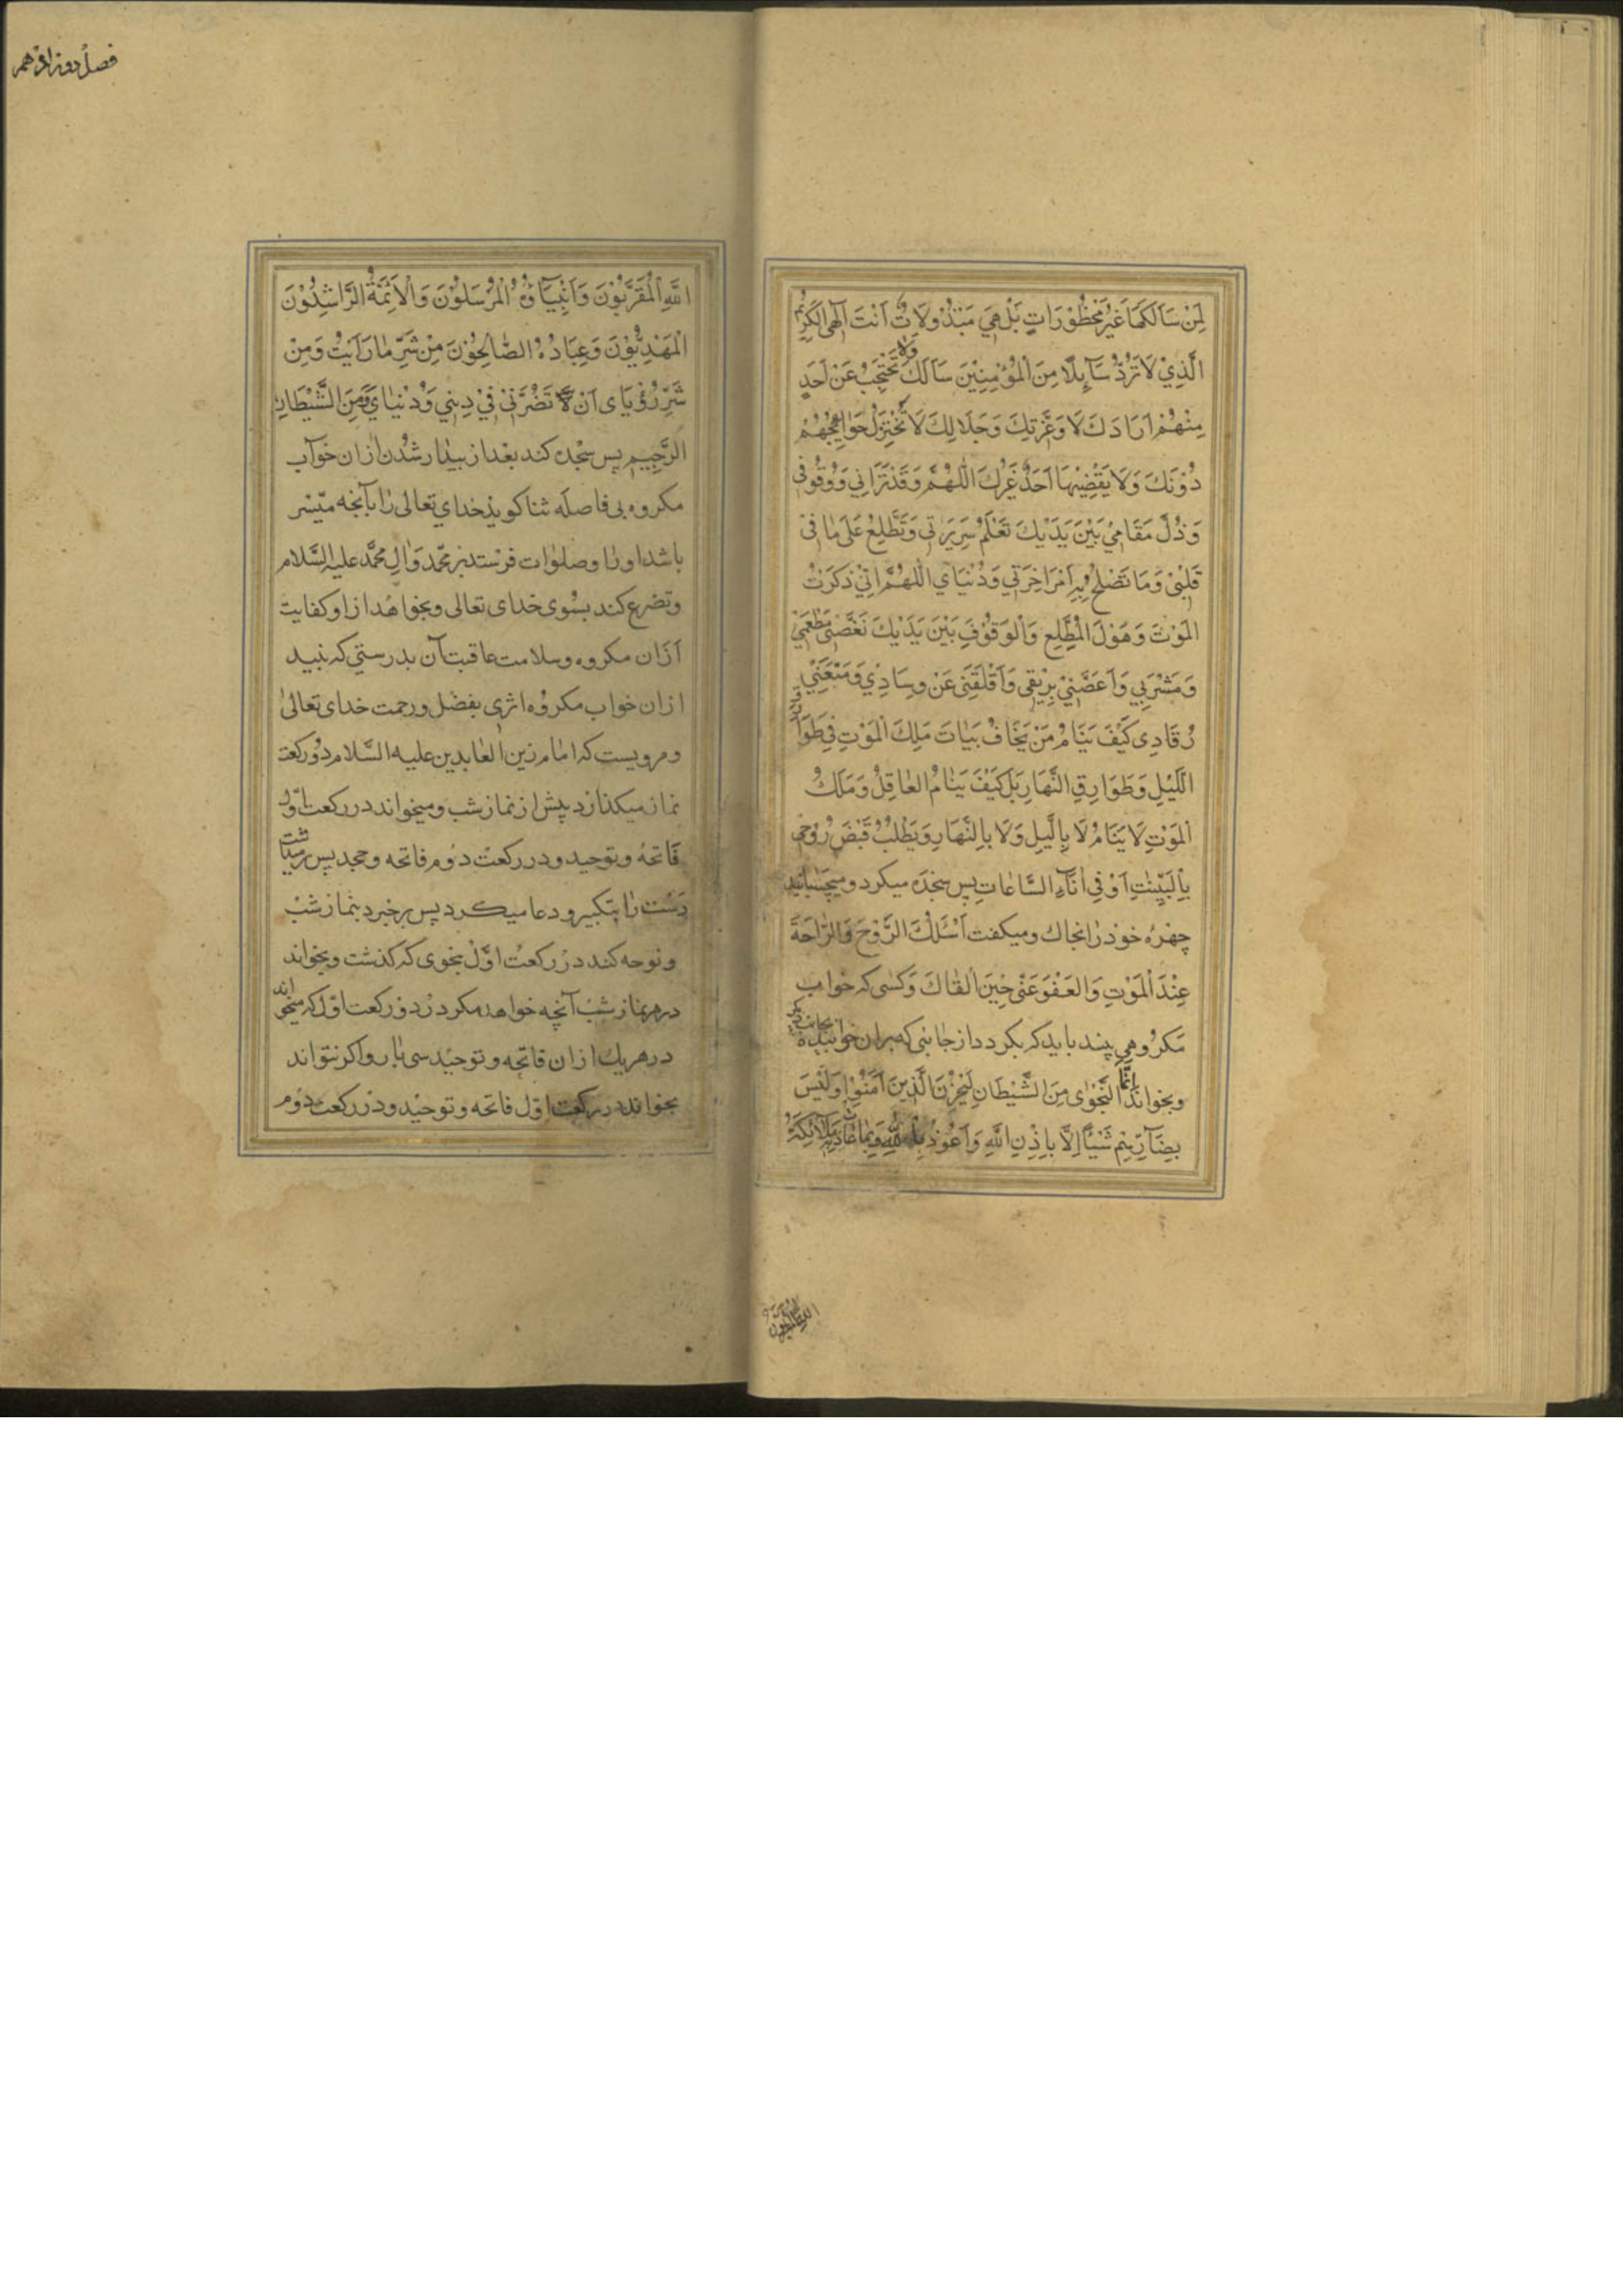 لِمَنْ سَأَلَكَهَا غَيْرُ مَحْظُوْرَاتٍ بَلْ هِيَ مَبْذُوْلَاتٌ اَنْتَ اِلٰهِي الْكَرِيْمُ
الَّذِيْ لَا تَرُدُّ سَآئِلًا مِنَ الْمُؤْمِنِيْنَ سَأَلَكَ وَلَا تَحْتَجِبُ عَنْ اَحَدٍ
مِنْهُمْ اَرَادَكَ لَا وَعِزَّتِكَ وَجَلَالِكَ لَا تُخْتَزَلُ حَوَائِجُهُمْ
دُوْنَكَ وَلَا يَقْضِيْهَا اَحَدٌ غَيْرُكَ اَللّٰهُمَّ وَقَدْ تَرَانِي وَوُقُوفِي
وَذُلَّ مَقَامِيْ بَيْنَ يَدَيْكَ تَعْلَمُ سَرِيْرَتِي وَتَطَّلِعُ عَلَى مَا فِيْ
قَلْبِيْ وَمَا تَصْلُحُ بِهِ اَمْرُ اٰخِرَتِي وَدُنْيَايَ اَللّٰهُمَّ اِنِّيْ ذَكَرْتُ
الْمَوْتَ وَهَوْلَ الْمُطَّلَعِ وَالْوُقُوْفِ بَيْنَ يَدَيْكَ نَغَّصَنِيْ مَطْعَمِيْ
وَمَشْرَبِي وَاَغَصَّنِيْ بِرِيْقِي وَاَقْلَقَنِيْ عَنْ وِسَادِيْ وَمَنَعَنِيْ
رُقَادِي كَيْفَ يَنَامُ مَنْ يَخَافُ بَيَاتَ مَلَكِ الْمَوْتِ فِي طَوَارِقِ
اللَّيْلِ وَطَوَارِقِ النَّهَارِ بَلْ كَيْفَ يَنَامُ الْعَاقِلُ وَمَلَكُ
الْمَوْتِ لَا يَنَامُ لَا بِاللَّيْلِ وَلَا بِالنَّهَارِ وَيَطْلُبُ قَبْضَ رُوْحِي
بِالْبَيَاتِ اَوْ فِي اٰنَآءِ السَّاعَاتِ پس سجده میکرد و میچسبانید
چهرهٔ خود را بخاك و میکفت اَسْئَلُكَ الرَّوْحَ وَالرَّاحَةَ
عِنْدَ الْمَوْتِ وَالْعَفْوَ عَنِّيْ حِيْنَ اَلْقَاكَ وکسی که خواب
مکروهی بیند باید که بکردد از جانبی که بران خوابیده بجانب دیکر
و بخواند اِنَّمَا النَّجْوٰى مِنَ الشَّيْطَانِ لِيَحْزُنَ الَّذِيْنَ اٰمَنُوْا وَلَيْسَ
بِضَآرِّهِمْ شَيْئًا اِلَّا بِاِذْنِ اللّٰهِ وَاَعُوْذُ بِاللّٰهِ وَبِمَا عَاذَتْ بِهِ مَلَآئِكَةُ
فصل دوازدهم
اللّٰهِ الْمُقَرَّبُوْنَ وَاَنْبِيَآؤُهُ الْمُرْسَلُوْنَ وَالْاَئِمَّةُ الرَّاشِدُوْنَ
الْمَهْدِيُّوْنَ وَعِبَادُهُ الصَّالِحُوْنَ مِنْ شَرِّ مَا رَاَيْتُ وَمِنْ
شَرِّ رُؤْيَاىَ اَنْ تَضُرَّنِيْ فِيْ دِيْنِي وَدُنْيَايَ وَمِنَ الشَّيْطَانِ
الرَّجِيْمِ پس سجده کند بعد از بیدار شدن ازان خواب
مکروه بی فاصله ثنا کوید خدای تعالی را بآنچه میسّر
باشد او را و صلوات فرستد بر محمّد وَاٰلِ محمَّد علیه السَّلام
و تضرع کند بسوی خدای تعالی و بخواهد از او کفایت
ازان مکروه و سلامت عاقبت آن بدرستی که نبیند
ازان خواب مکروه اثری بفضل و رحمت خدای تعالی
و مرویست که امام زین العابدین علیه السَّلام دو رکعت
نماز میکذارد پیش از نماز شب و میخواند در رکعت اوّل
فاتحه و توحید و در رکعت دوم فاتحه و جحد پس برمیداشت
دست را بتکبیر و دعا میکرد پس برخیزد بنماز شب
و توجه کند در رکعت اوّل بنحوی که کذشت و بخواند
در هر نماز شب آنچه خواهد مکر در دو رکعت اوّل که میخواند
در هر یك ازان فاتحه و توحید سی بار و اکر نتواند
بخواند در رکعت اوّل فاتحه و توحید و در رکعت دوم